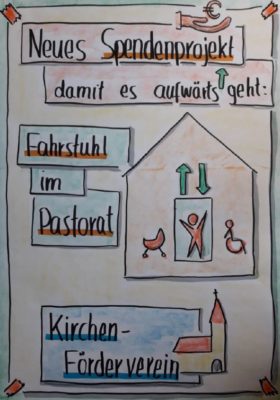 Neues Spendenprojekt
damit es aufwärts geht:
Fahrstuhl
im
Pastorat
Kirchen-
Förderverein